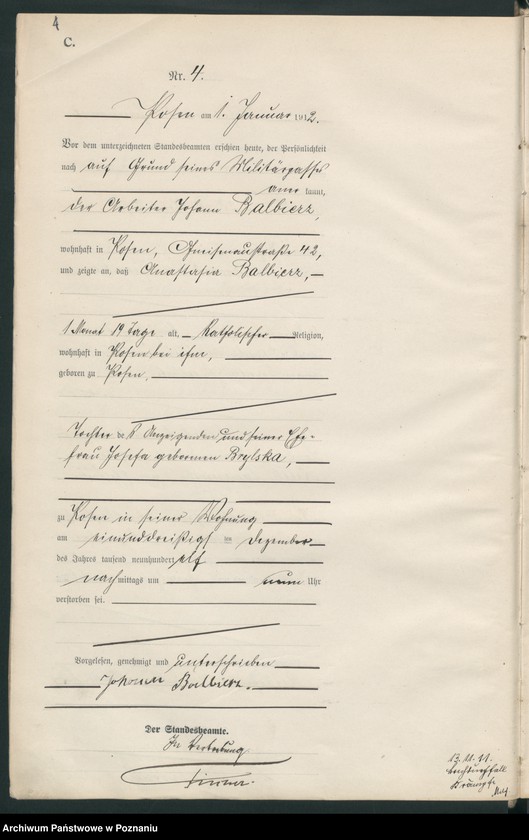 4
C.
Nr. 4.
Posen am 1. Januar 1912.
Vor dem unterzeichneten Standesbeamten erschien heute, der Persönlichkeit
nach auf Grund seines Militärpasses
aner kannt,
der Arbeiter Johann Balbierz,
wohnhaft in Posen, Gneisenaustraße 42,
und zeigte an, daß Anastasia Balbierz,
1 Monat 19 Tage alt, Katholischer Religion,
wohnhaft in Posen bei ihm,
geboren zu Posen,
Tochter des Anzeigenden und seiner Ehe-
frau Josefa geborenen Brylska,
zu Posen in seiner Wohnung
am einunddreißigsten Dezember
des Jahres tausend neunhundert elf
nach mittags um neun Uhr
verstorben sei.
Vorgelesen, genehmigt und unterschrieben
Johann Balbierz.
Der Standesbeamte.
In Vertretung
Brechdurchfall
Krämpfe
Archiwum Państwowe w Poznaniu